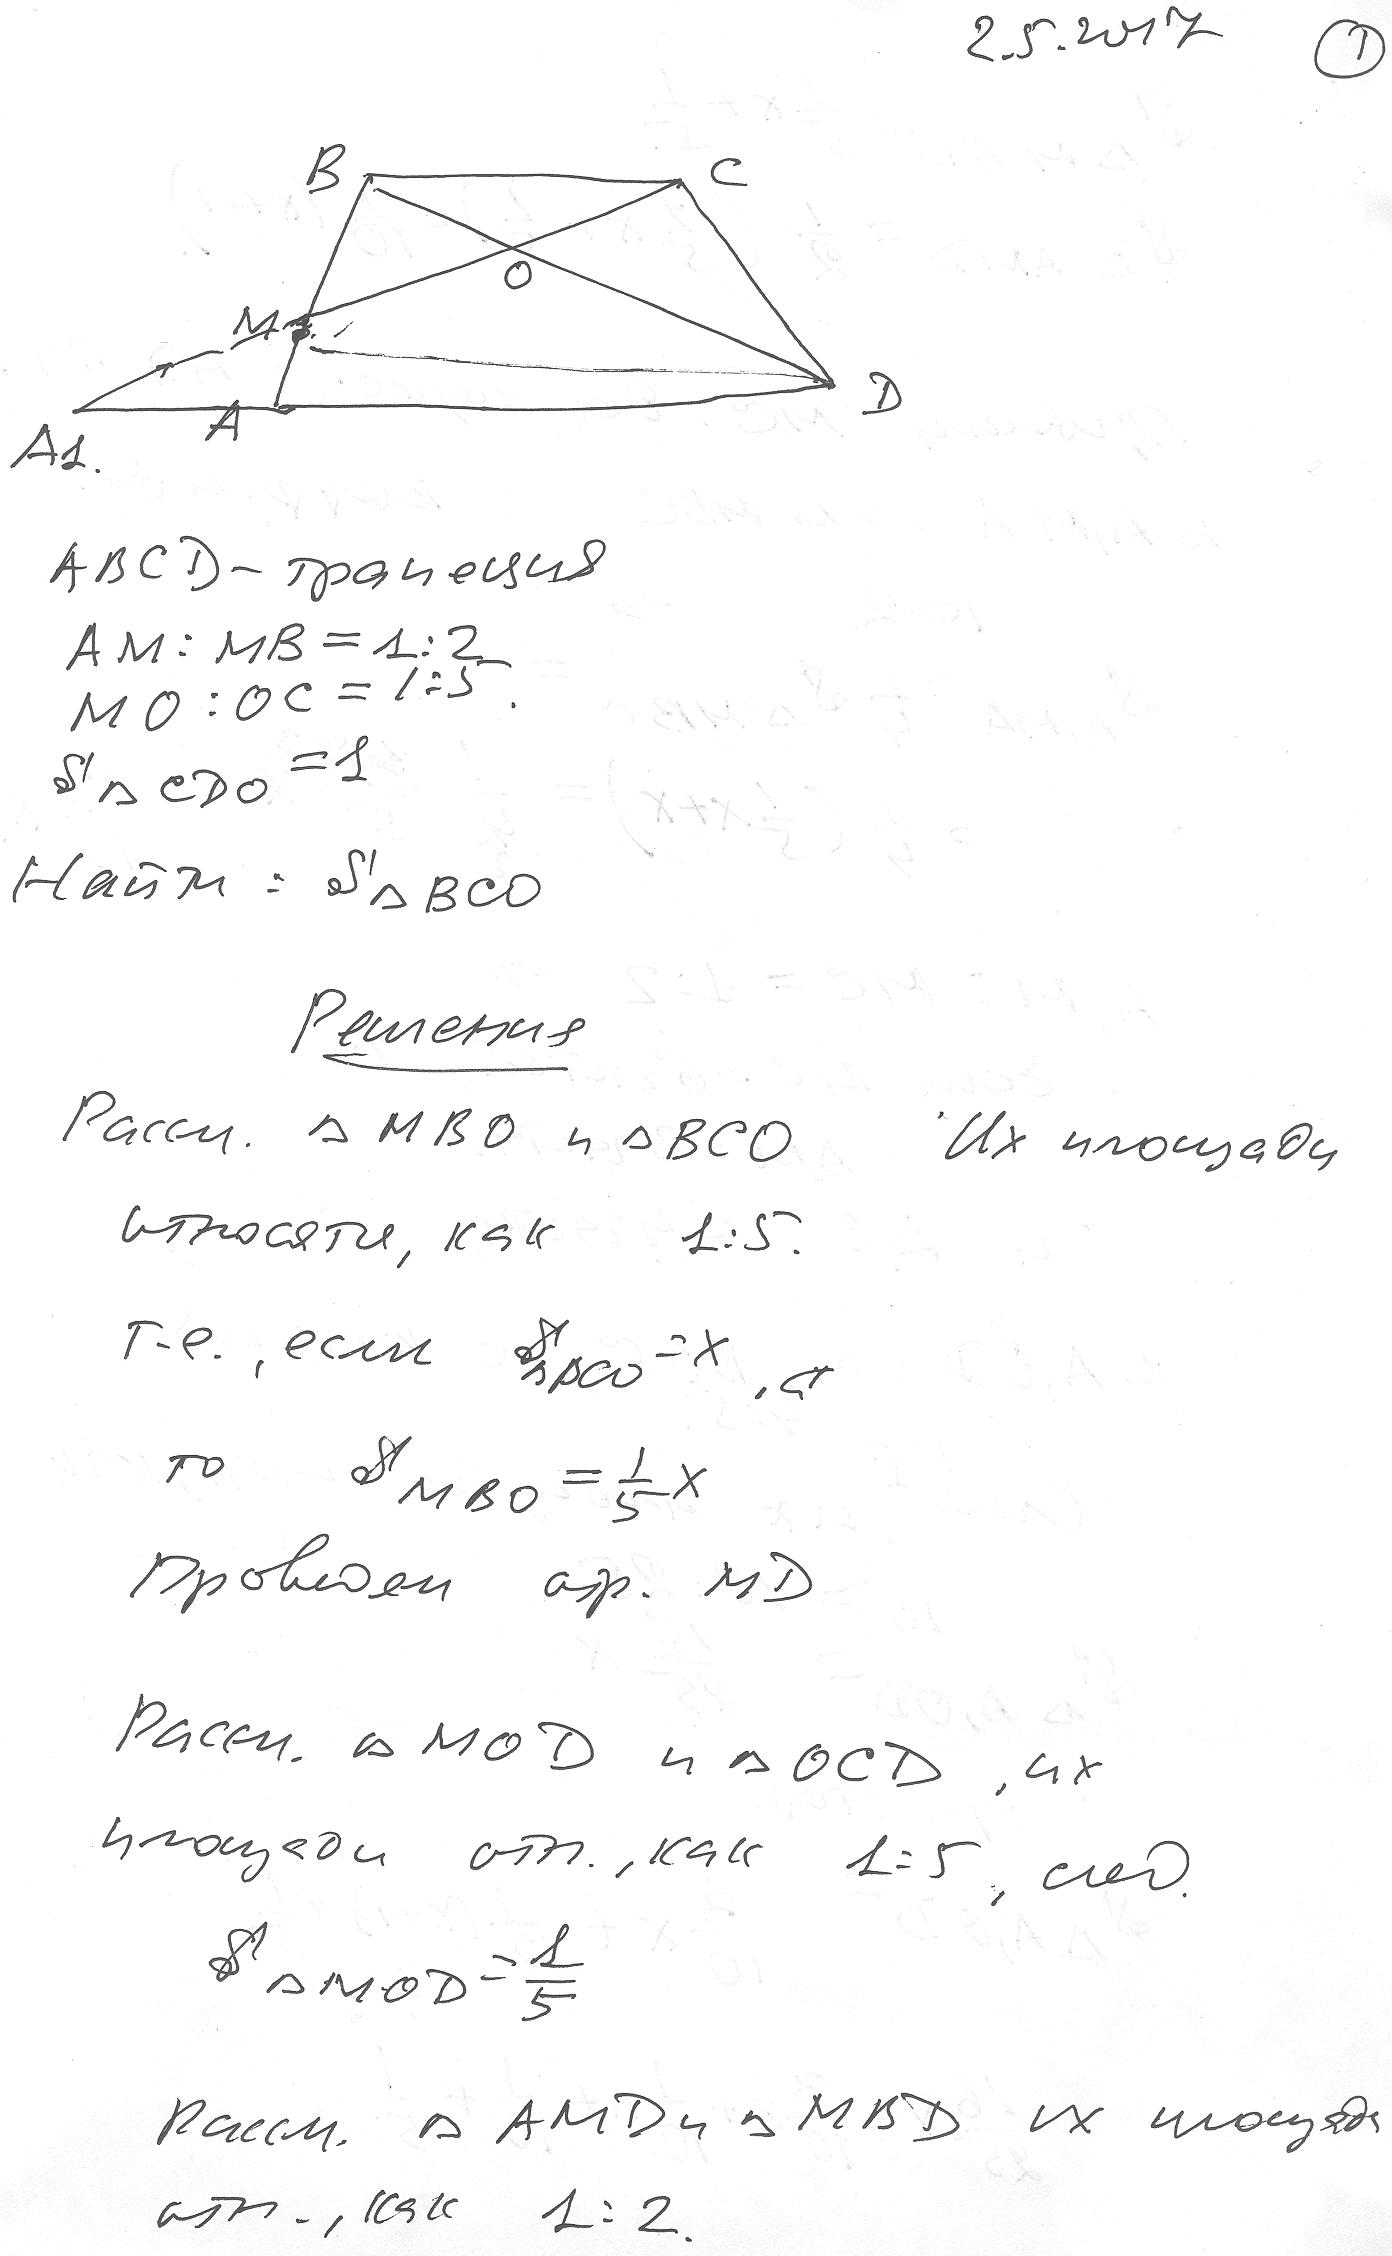 2.5.2017 1
B C
O
M
D
A
A1.
ABCD - трапеция
AM : MB = 1:2
MO : OC = 1:5.
S△CDO = 1
Найти : S△BCO
Решения
Рассм. △MBO и △BCO Их площади
относятся, как 1:5.
т.е., если S△BCO = x, а
то SMBO = 1/5 x
Проведем отр. MD
Рассм. △MOD и △OCD, их
площади отн., как 1:5, след.
S△MOD = 1/5
Рассм. △AMD и △MBD их площади
отн., как 1:2.